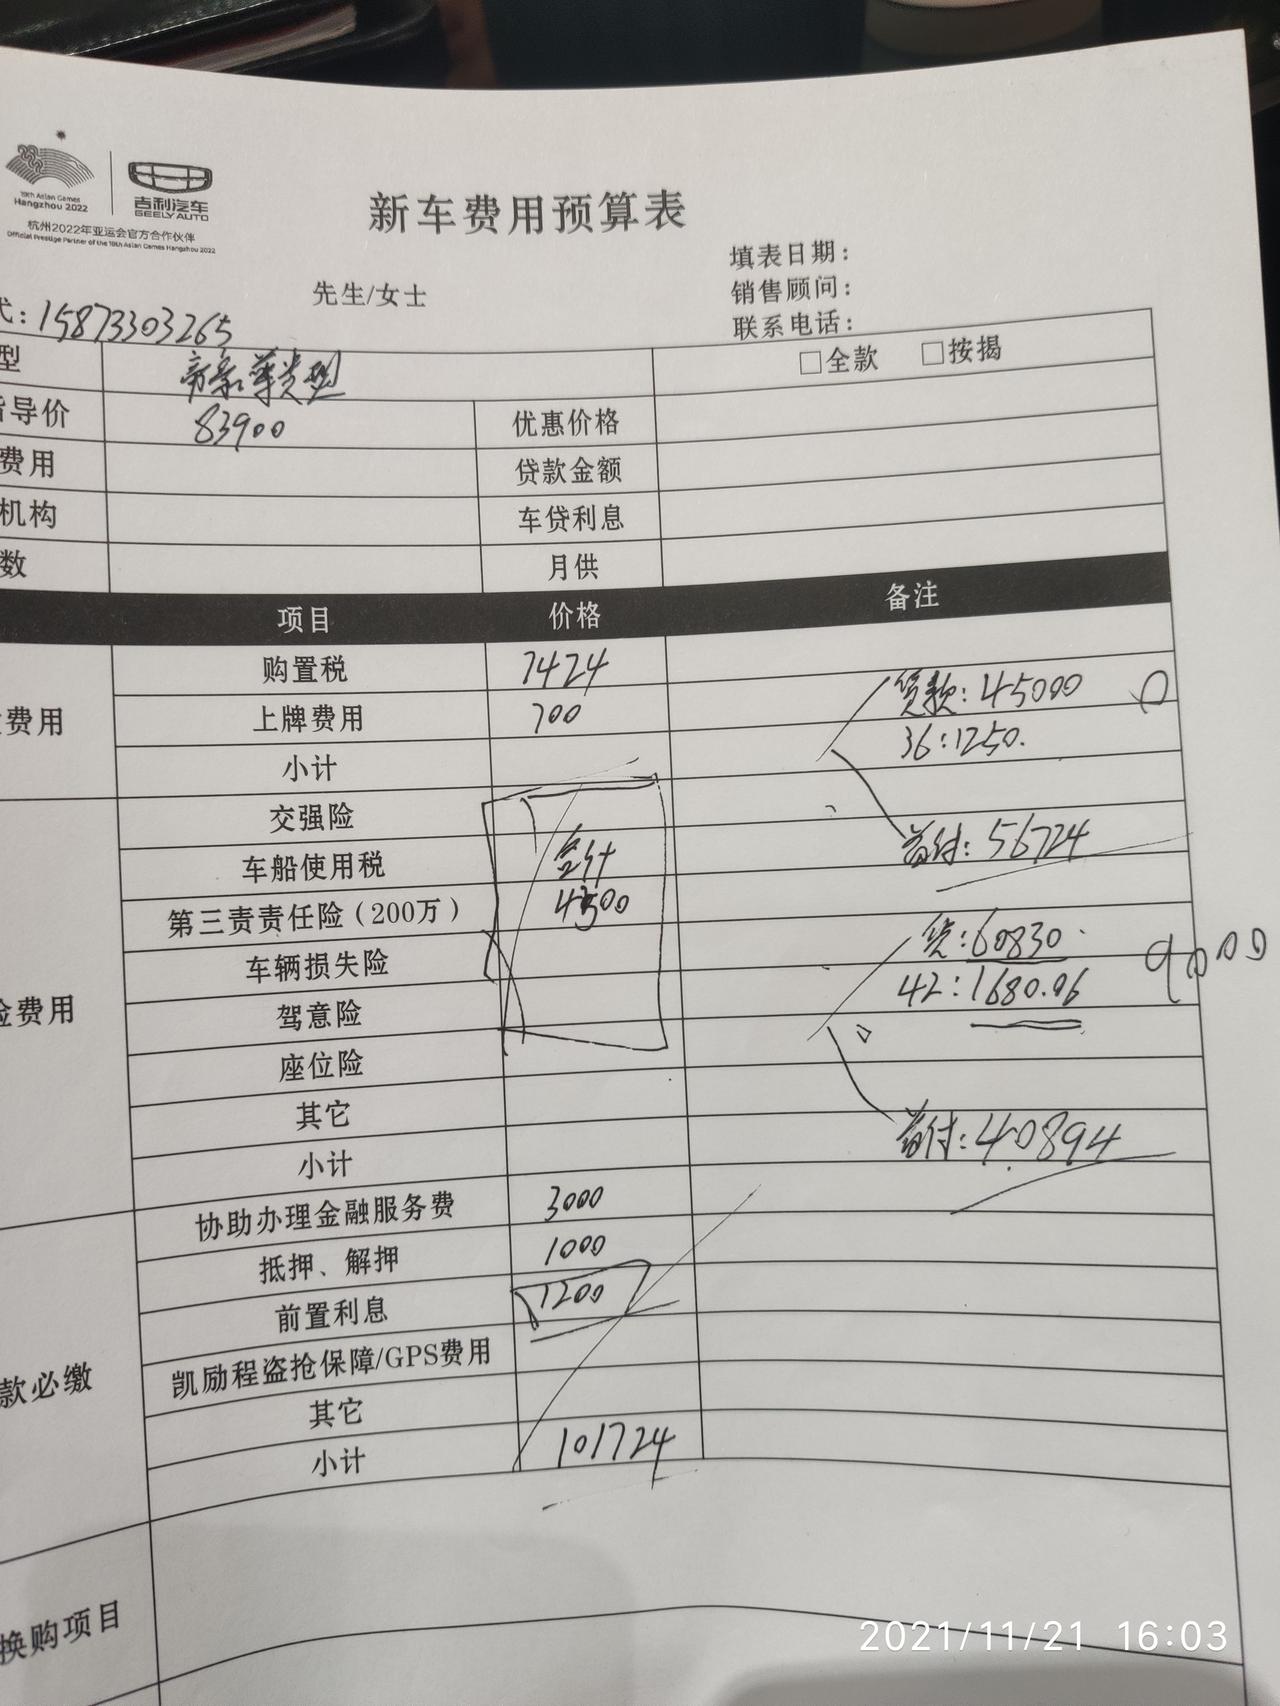 19th Asian Games
Hangzhou 2022
吉利汽车
GEELY AUTO
杭州2022年亚运会官方合作伙伴
Official Prestige Partner of the 19th Asian Games Hangzhou 2022
新车费用预算表
填表日期：
先生/女士
销售顾问：
联系电话：
式：15873303265
型 帝豪尊贵型 □全款 □按揭
指导价 83900 优惠价格
费用 贷款金额
机构 车贷利息
数 月供
项目 价格 备注
购置税 7424
贷款：45000 0
费用 上牌费用 700
36：1250.
小计
交强险
首付：56724
车船使用税 合计
第三责责任险（200万） 4500
贷：60830
车辆损失险
42：1680.06
9000
险费用 驾意险
座位险
其它
首付：40894
小计
协助办理金融服务费 3000
抵押、解押 1000
前置利息 1200
款必缴 凯励程盗抢保障/GPS费用
其它
小计 101724
换购项目
2021/11/21 16:03